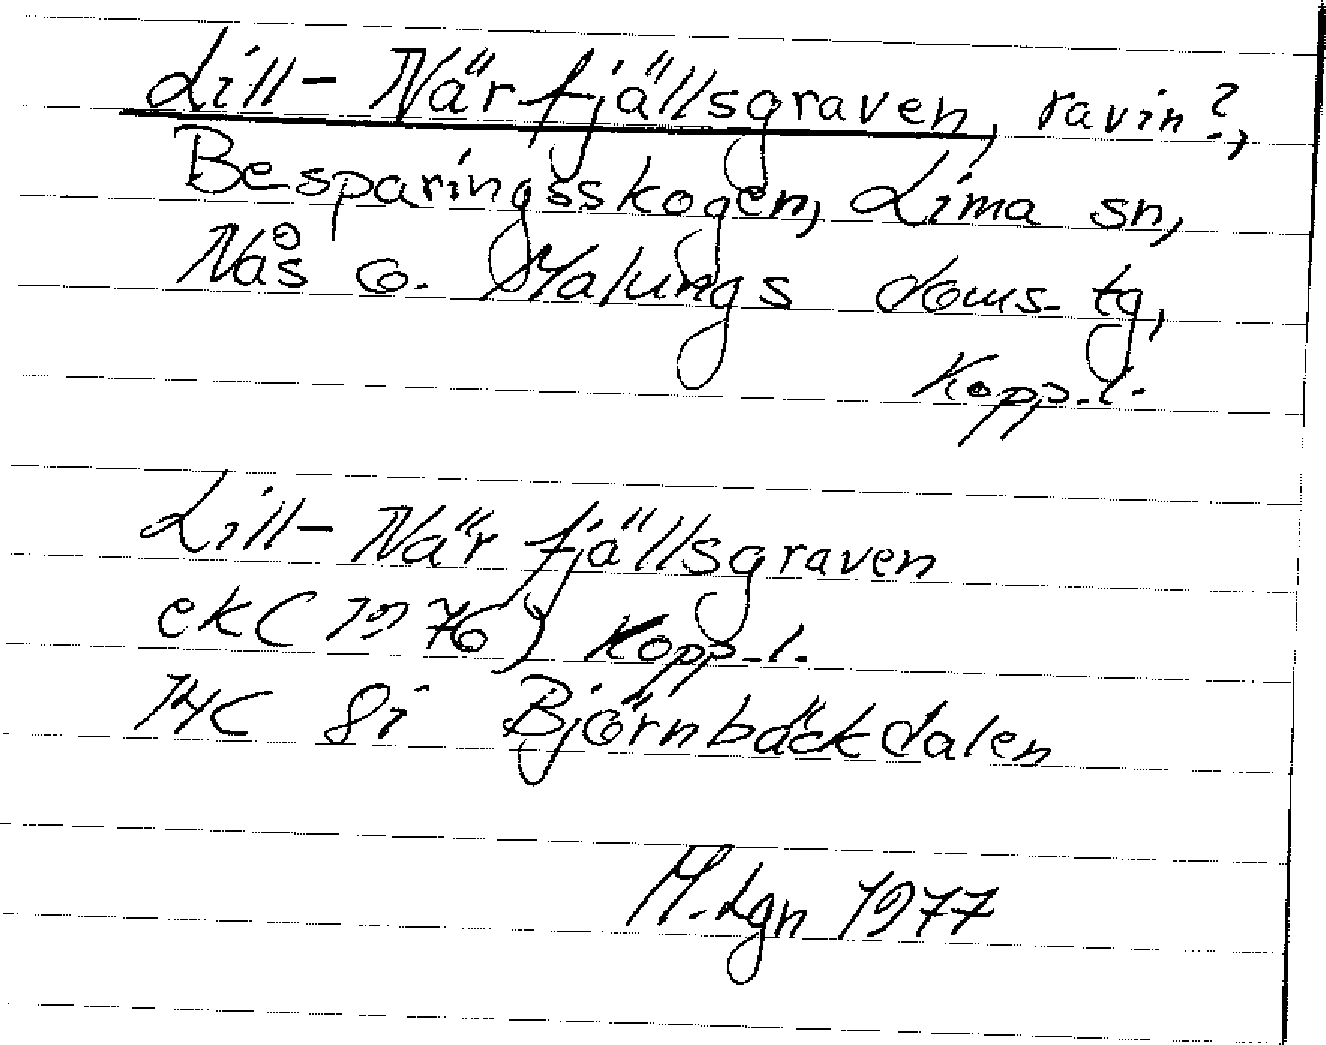 Lill-Närfjällsgraven, ravin?,
Besparingsskogen, Lima sn,
Nås o. Malungs doms. tg,
Kopp.l.
Lill-Närfjällsgraven
ek(1976) Kopp.l.
14C 8i Björnbäckdalen
M.Lgn 1977